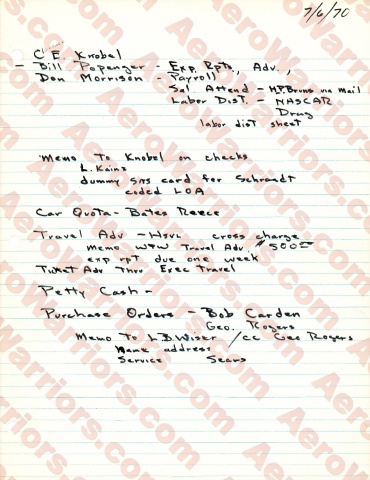 7/6/70
C E Knobel
- Bill Popenger - Exp. Rpts, Adv.,
Don Morrison - Payroll
Sal Attend - H.P. Bruns via Mail
Labor Dist. - NASCAR
Drag
labor dist sheet
Memo To Knobel on checks
L. Kainz
dummy card for Schrandt
coded LOA
Car Quota - Bates Reece
Travel Adv - cross charge
Memo Travel Adv. $500.00
exp rpt due one week
Ticket Adv Thru Exec Travel
Petty Cash -
Purchase Orders - Bob Carden
Geo. Rogers
Memo To L.B. Wiser / cc Geo Rogers
Name address
Service Sears
AeroWarriors.com